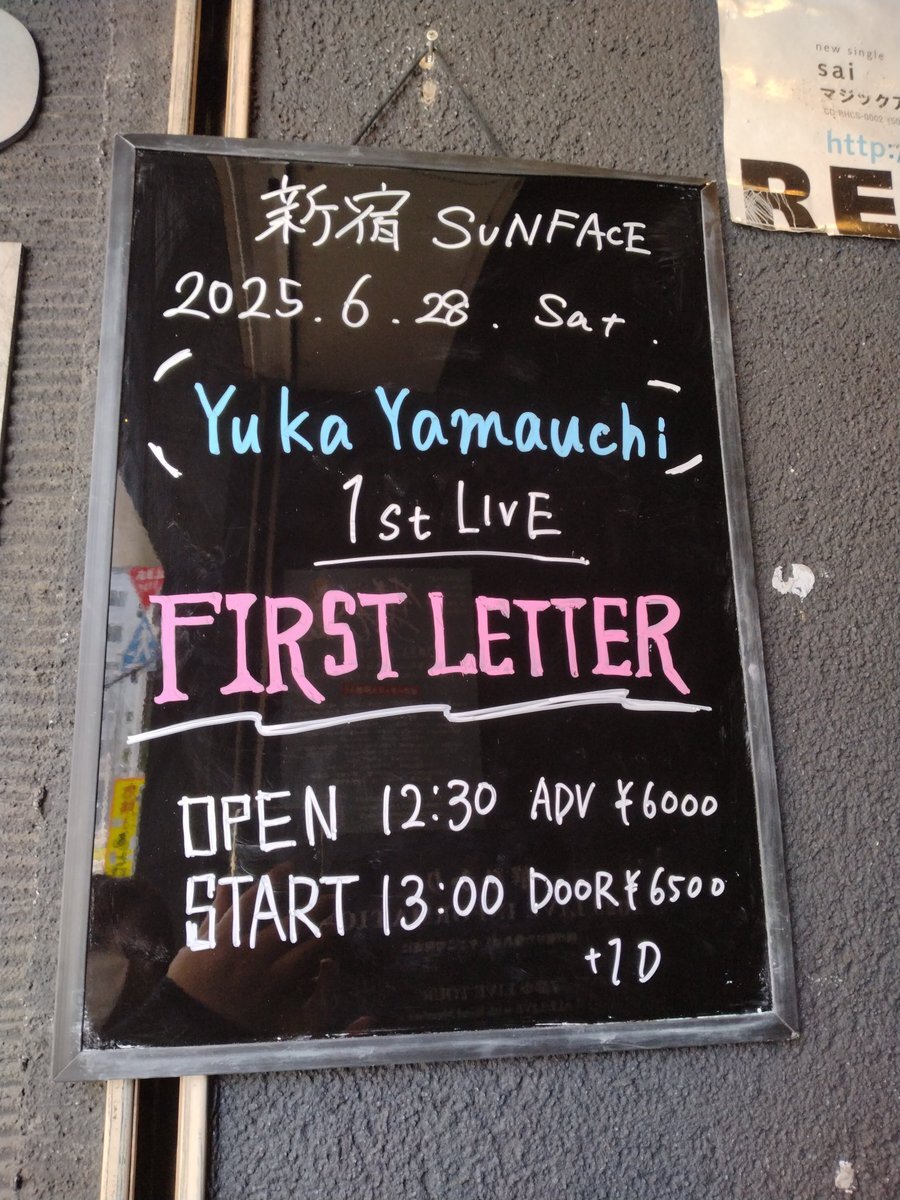 新宿 SUNFACE
2025.6.28. Sat.
Yuka Yamauchi
1st LIVE
FIRST LETTER
OPEN 12:30 ADV ¥6000
START 13:00 DOOR ¥6500
+1D
new single
sai
マジックア
http:/
RE